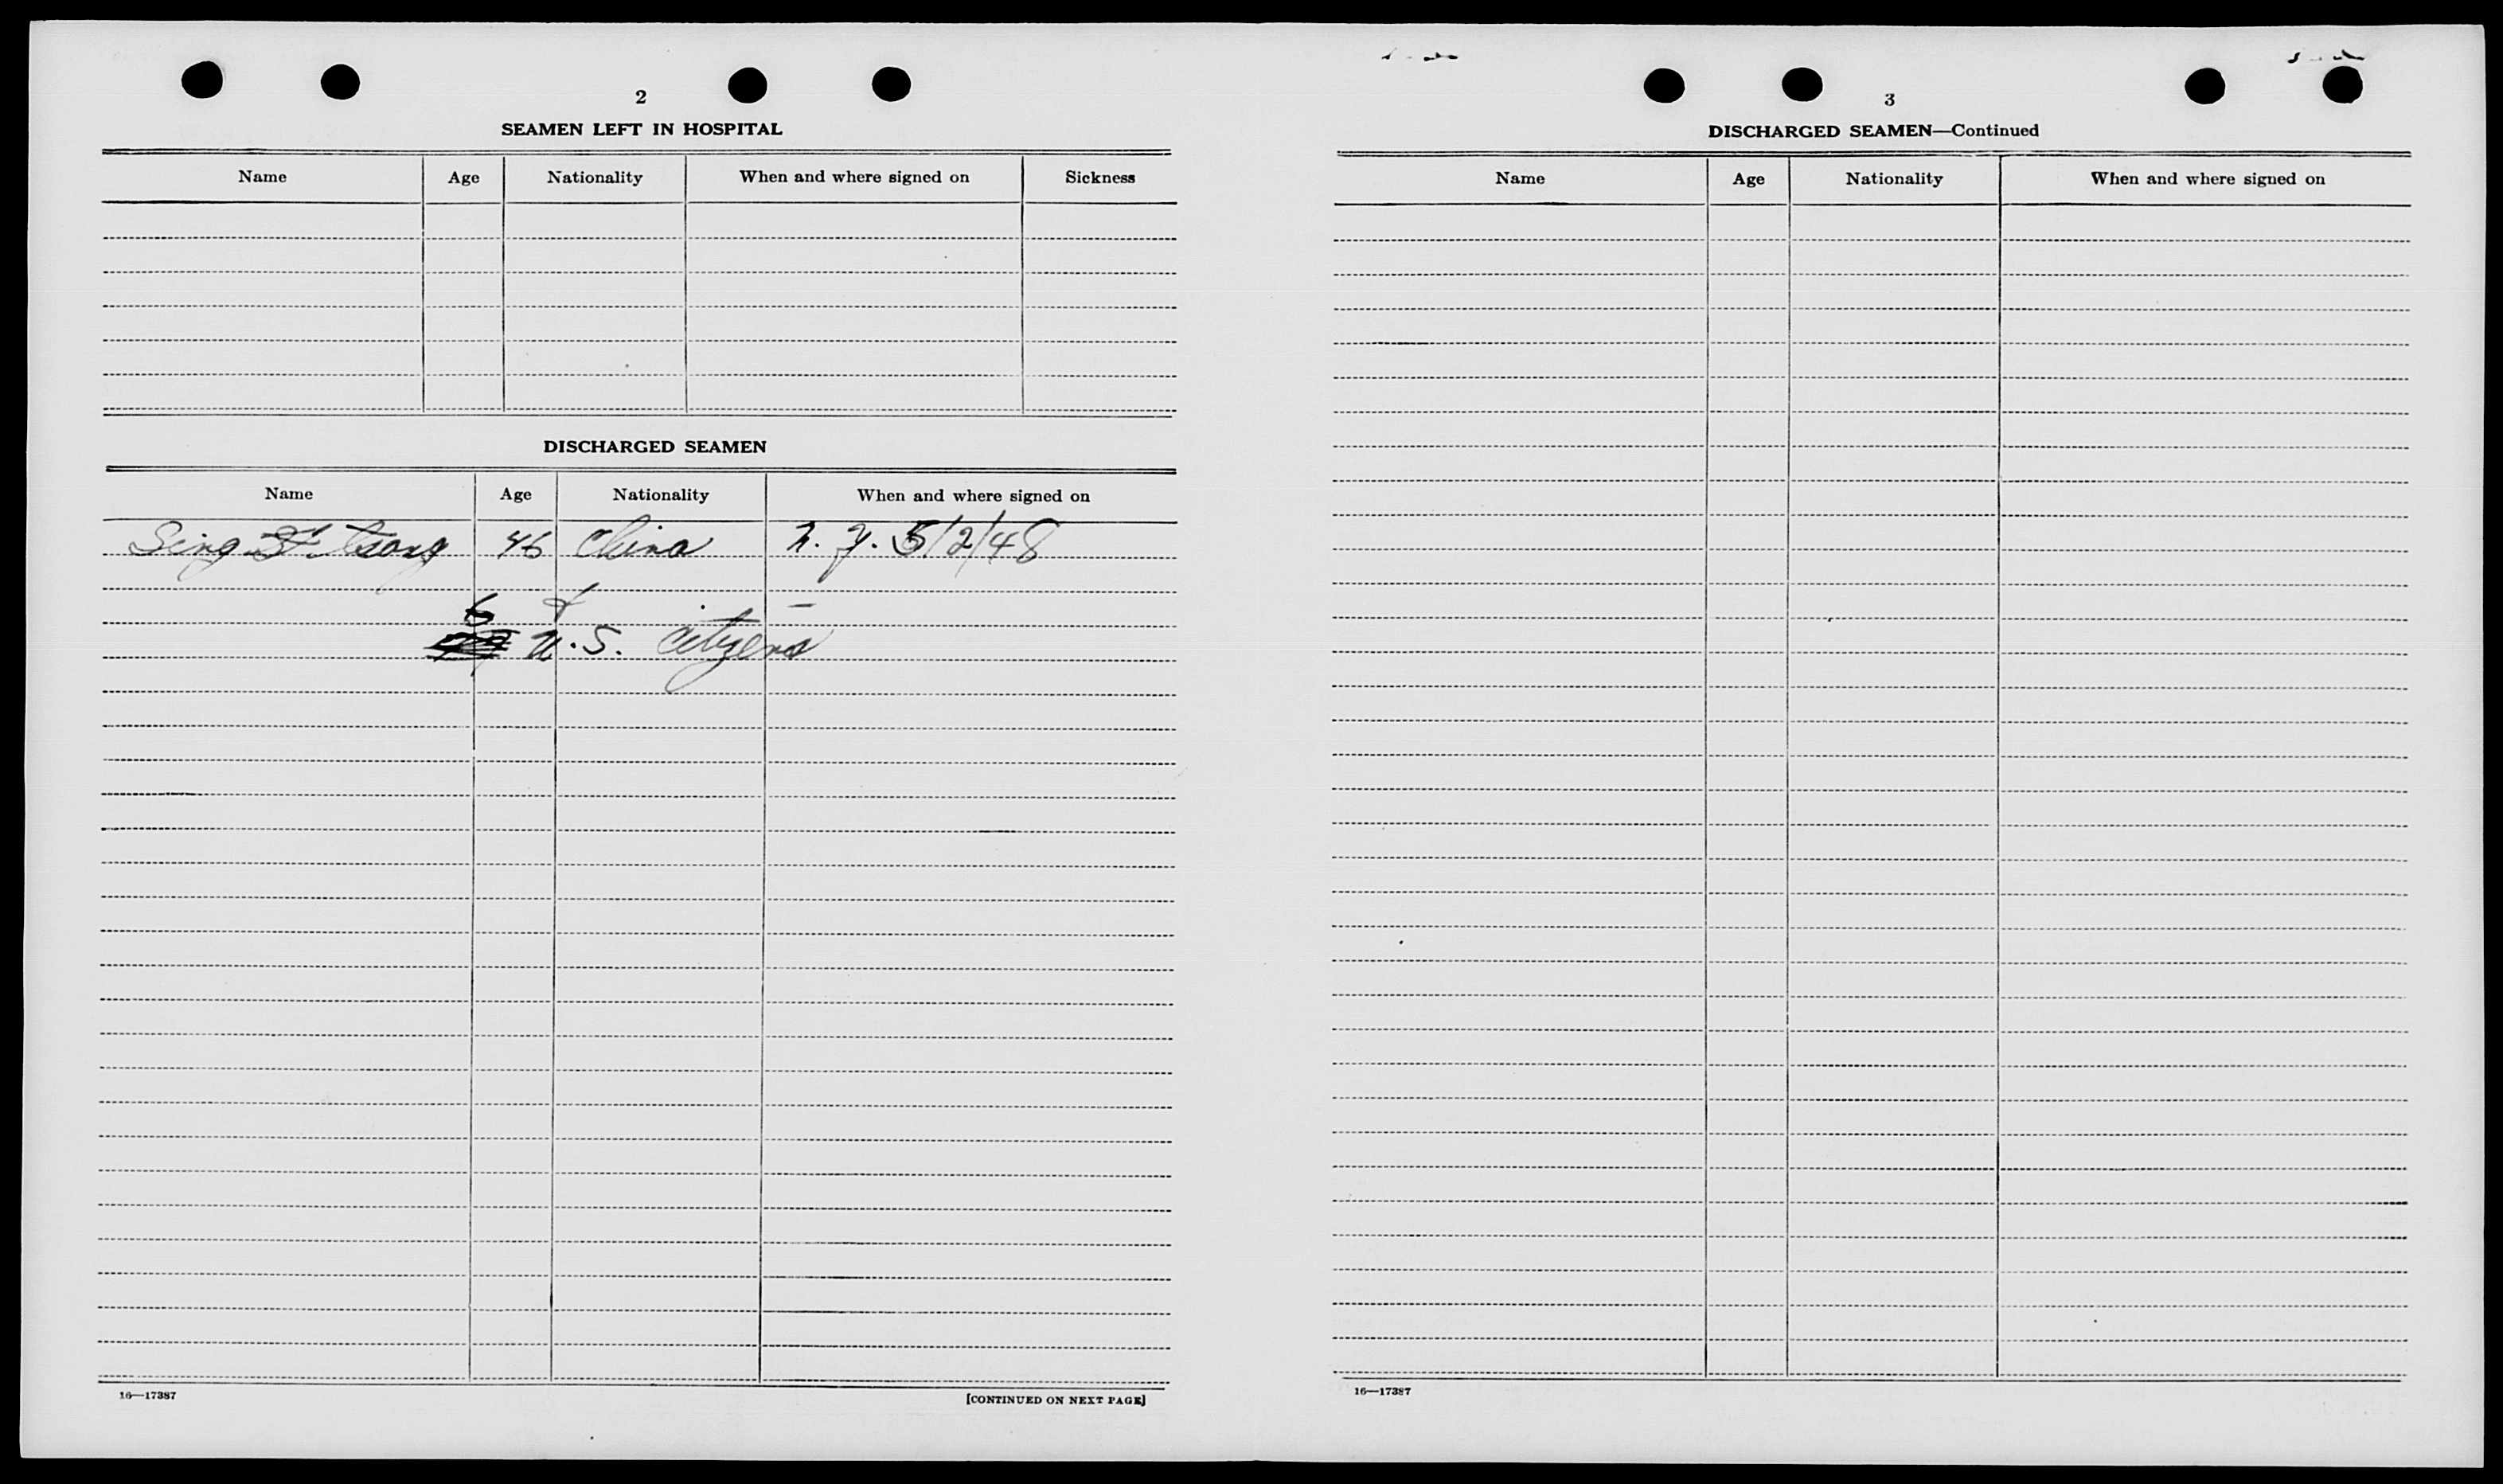 2
SEAMEN LEFT IN HOSPITAL
Name Age Nationality When and where signed on Sickness
DISCHARGED SEAMEN
Name Age Nationality When and where signed on
Sing Tsang 46 China N.Y. 5/2/48
6
U.S. citizens
16—17387
[CONTINUED ON NEXT PAGE]
3
DISCHARGED SEAMEN—Continued
Name Age Nationality When and where signed on
16—17387